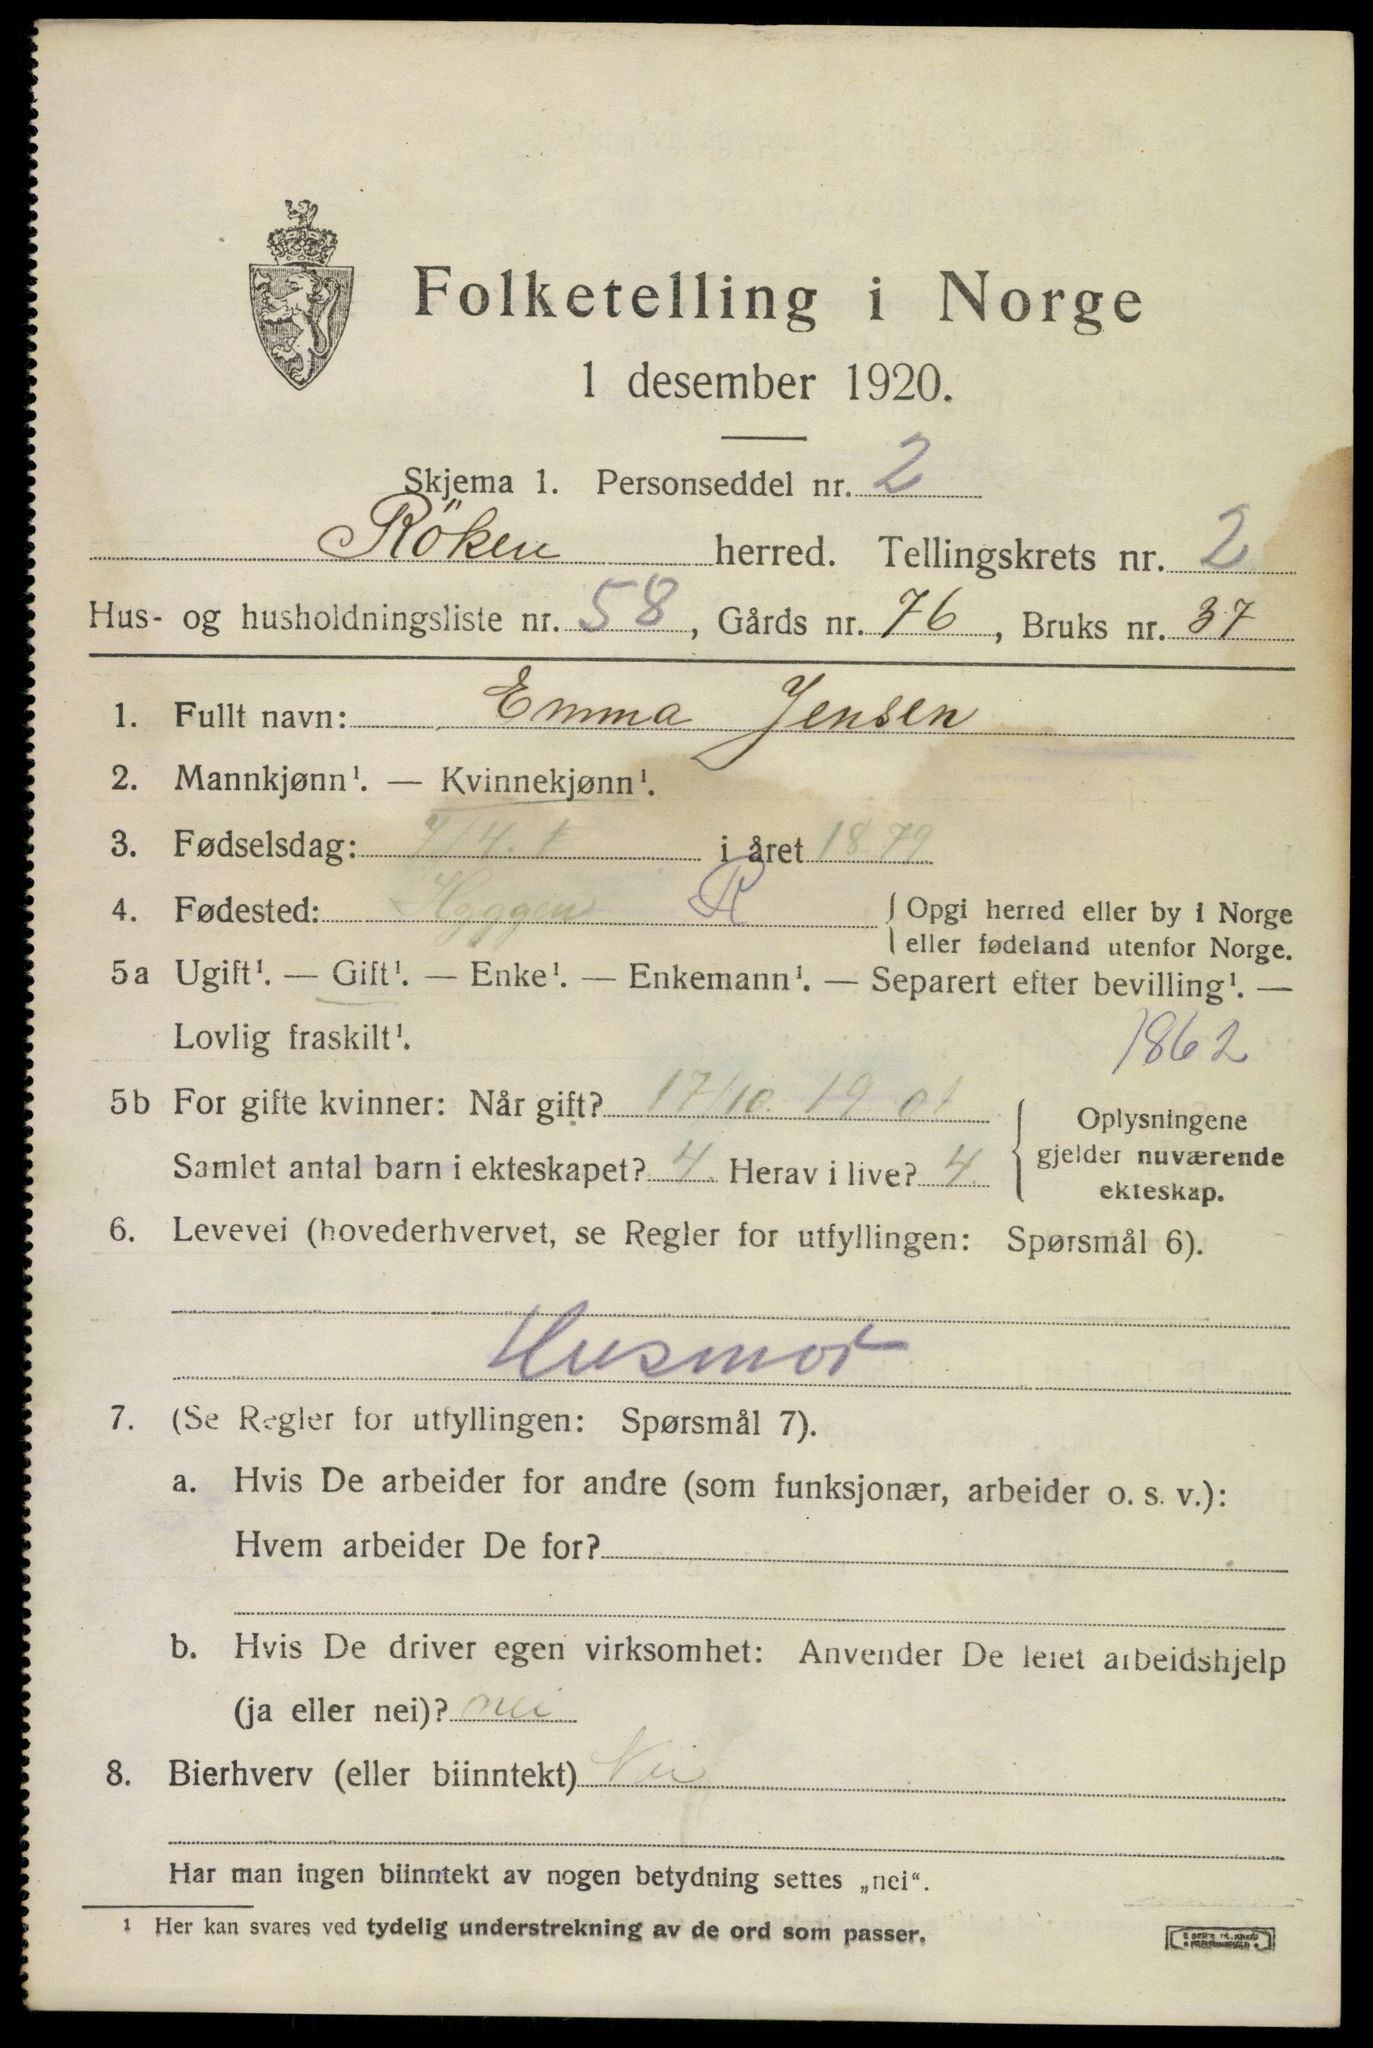 Folketelling i Norge
1 desember 1920.
Skjema 1. Personseddel nr. 2
Röken herred. Tellingskrets nr. 2
Hus- og husholdningsliste nr. 58, Gårds nr. 76, Bruks nr. 37
1. Fullt navn: Emma Jensen
2. Mannkjønn¹. — Kvinnekjønn¹.
3. Fødselsdag: 7/4. i året 1879
4. Fødested: Hyggen R { Opgi herred eller by i Norge
eller fødeland utenfor Norge.
5a Ugift¹. — Gift¹. — Enke¹. — Enkemann¹. — Separert efter bevilling¹. —
Lovlig fraskilt¹.
1862
5b For gifte kvinner: Når gift? 17/10. 1901
Samlet antal barn i ekteskapet? 4. Herav i live? 4.
{ Oplysningene
gjelder nuværende
ekteskap.
6. Levevei (hovederhvervet, se Regler for utfyllingen: Spørsmål 6).
Husmor
7. (Se Regler for utfyllingen: Spørsmål 7).
a. Hvis De arbeider for andre (som funksjonær, arbeider o. s. v.):
Hvem arbeider De for?
b. Hvis De driver egen virksomhet: Anvender De leiet arbeidshjelp
(ja eller nei)? nei
8. Bierhverv (eller biinntekt) Nei
Har man ingen biinntekt av nogen betydning settes „nei“.
¹ Her kan svares ved tydelig understrekning av de ord som passer.